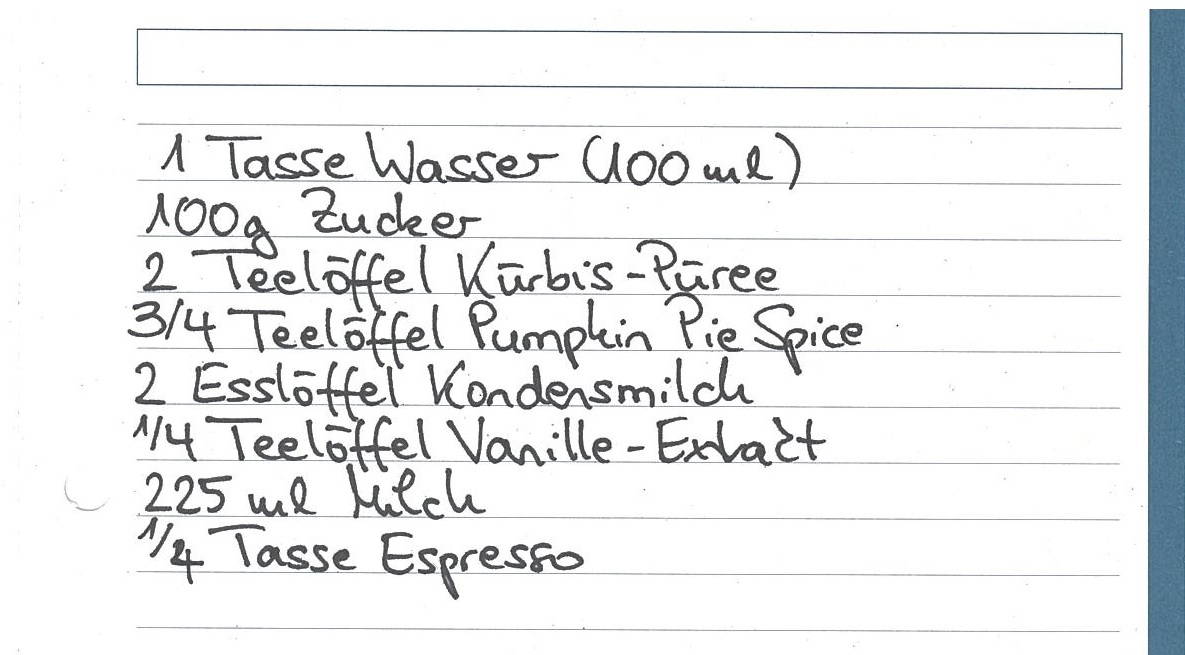 1 Tasse Wasser (100 ml)
100g Zucker
2 Teelöffel Kürbis-Püree
3/4 Teelöffel Pumpkin Pie Spice
2 Esslöffel Kondensmilch
1/4 Teelöffel Vanille-Extrakt
225 ml Milch
1/4 Tasse Espresso